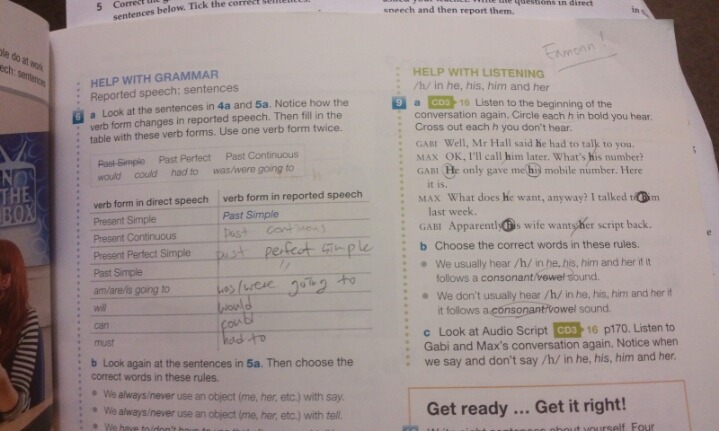 5 Correct the
sentences below. Tick the correct sentences.
the questions in direct
speech and then report them.
in
ple do at work
ech: sentences
IN
THE
BOX
HELP WITH GRAMMAR
Reported speech: sentences
6 a Look at the sentences in 4a and 5a. Notice how the
verb form changes in reported speech. Then fill in the
table with these verb forms. Use one verb form twice.
Past Simple Past Perfect Past Continuous
would could had to was/were going to
verb form in direct speech verb form in reported speech
Present Simple Past Simple
Present Continuous past continuous
Present Perfect Simple past perfect simple
Past Simple //
am/are/is going to was/were going to
will would
can could
must had to
b Look again at the sentences in 5a. Then choose the
correct words in these rules.
• We always/never use an object (me, her, etc.) with say.
• We always/never use an object (me, her, etc.) with tell.
• We have to/don't have to
Eamonn!
HELP WITH LISTENING
/h/ in he, his, him and her
9 a CD3 16 Listen to the beginning of the
conversation again. Circle each h in bold you hear.
Cross out each h you don't hear.
GABI Well, Mr Hall said he had to talk to you.
MAX OK, I'll call him later. What's his number?
GABI He only gave me his mobile number. Here
it is.
MAX What does he want, anyway? I talked to him
last week.
GABI Apparently his wife wants her script back.
b Choose the correct words in these rules.
• We usually hear /h/ in he, his, him and her if it
follows a consonant/vowel sound.
• We don't usually hear /h/ in he, his, him and her if
it follows a consonant/vowel sound.
c Look at Audio Script CD3 16 p170. Listen to
Gabi and Max's conversation again. Notice when
we say and don't say /h/ in he, his, him and her.
Get ready ... Get it right!
sentences about yourself. Four
e